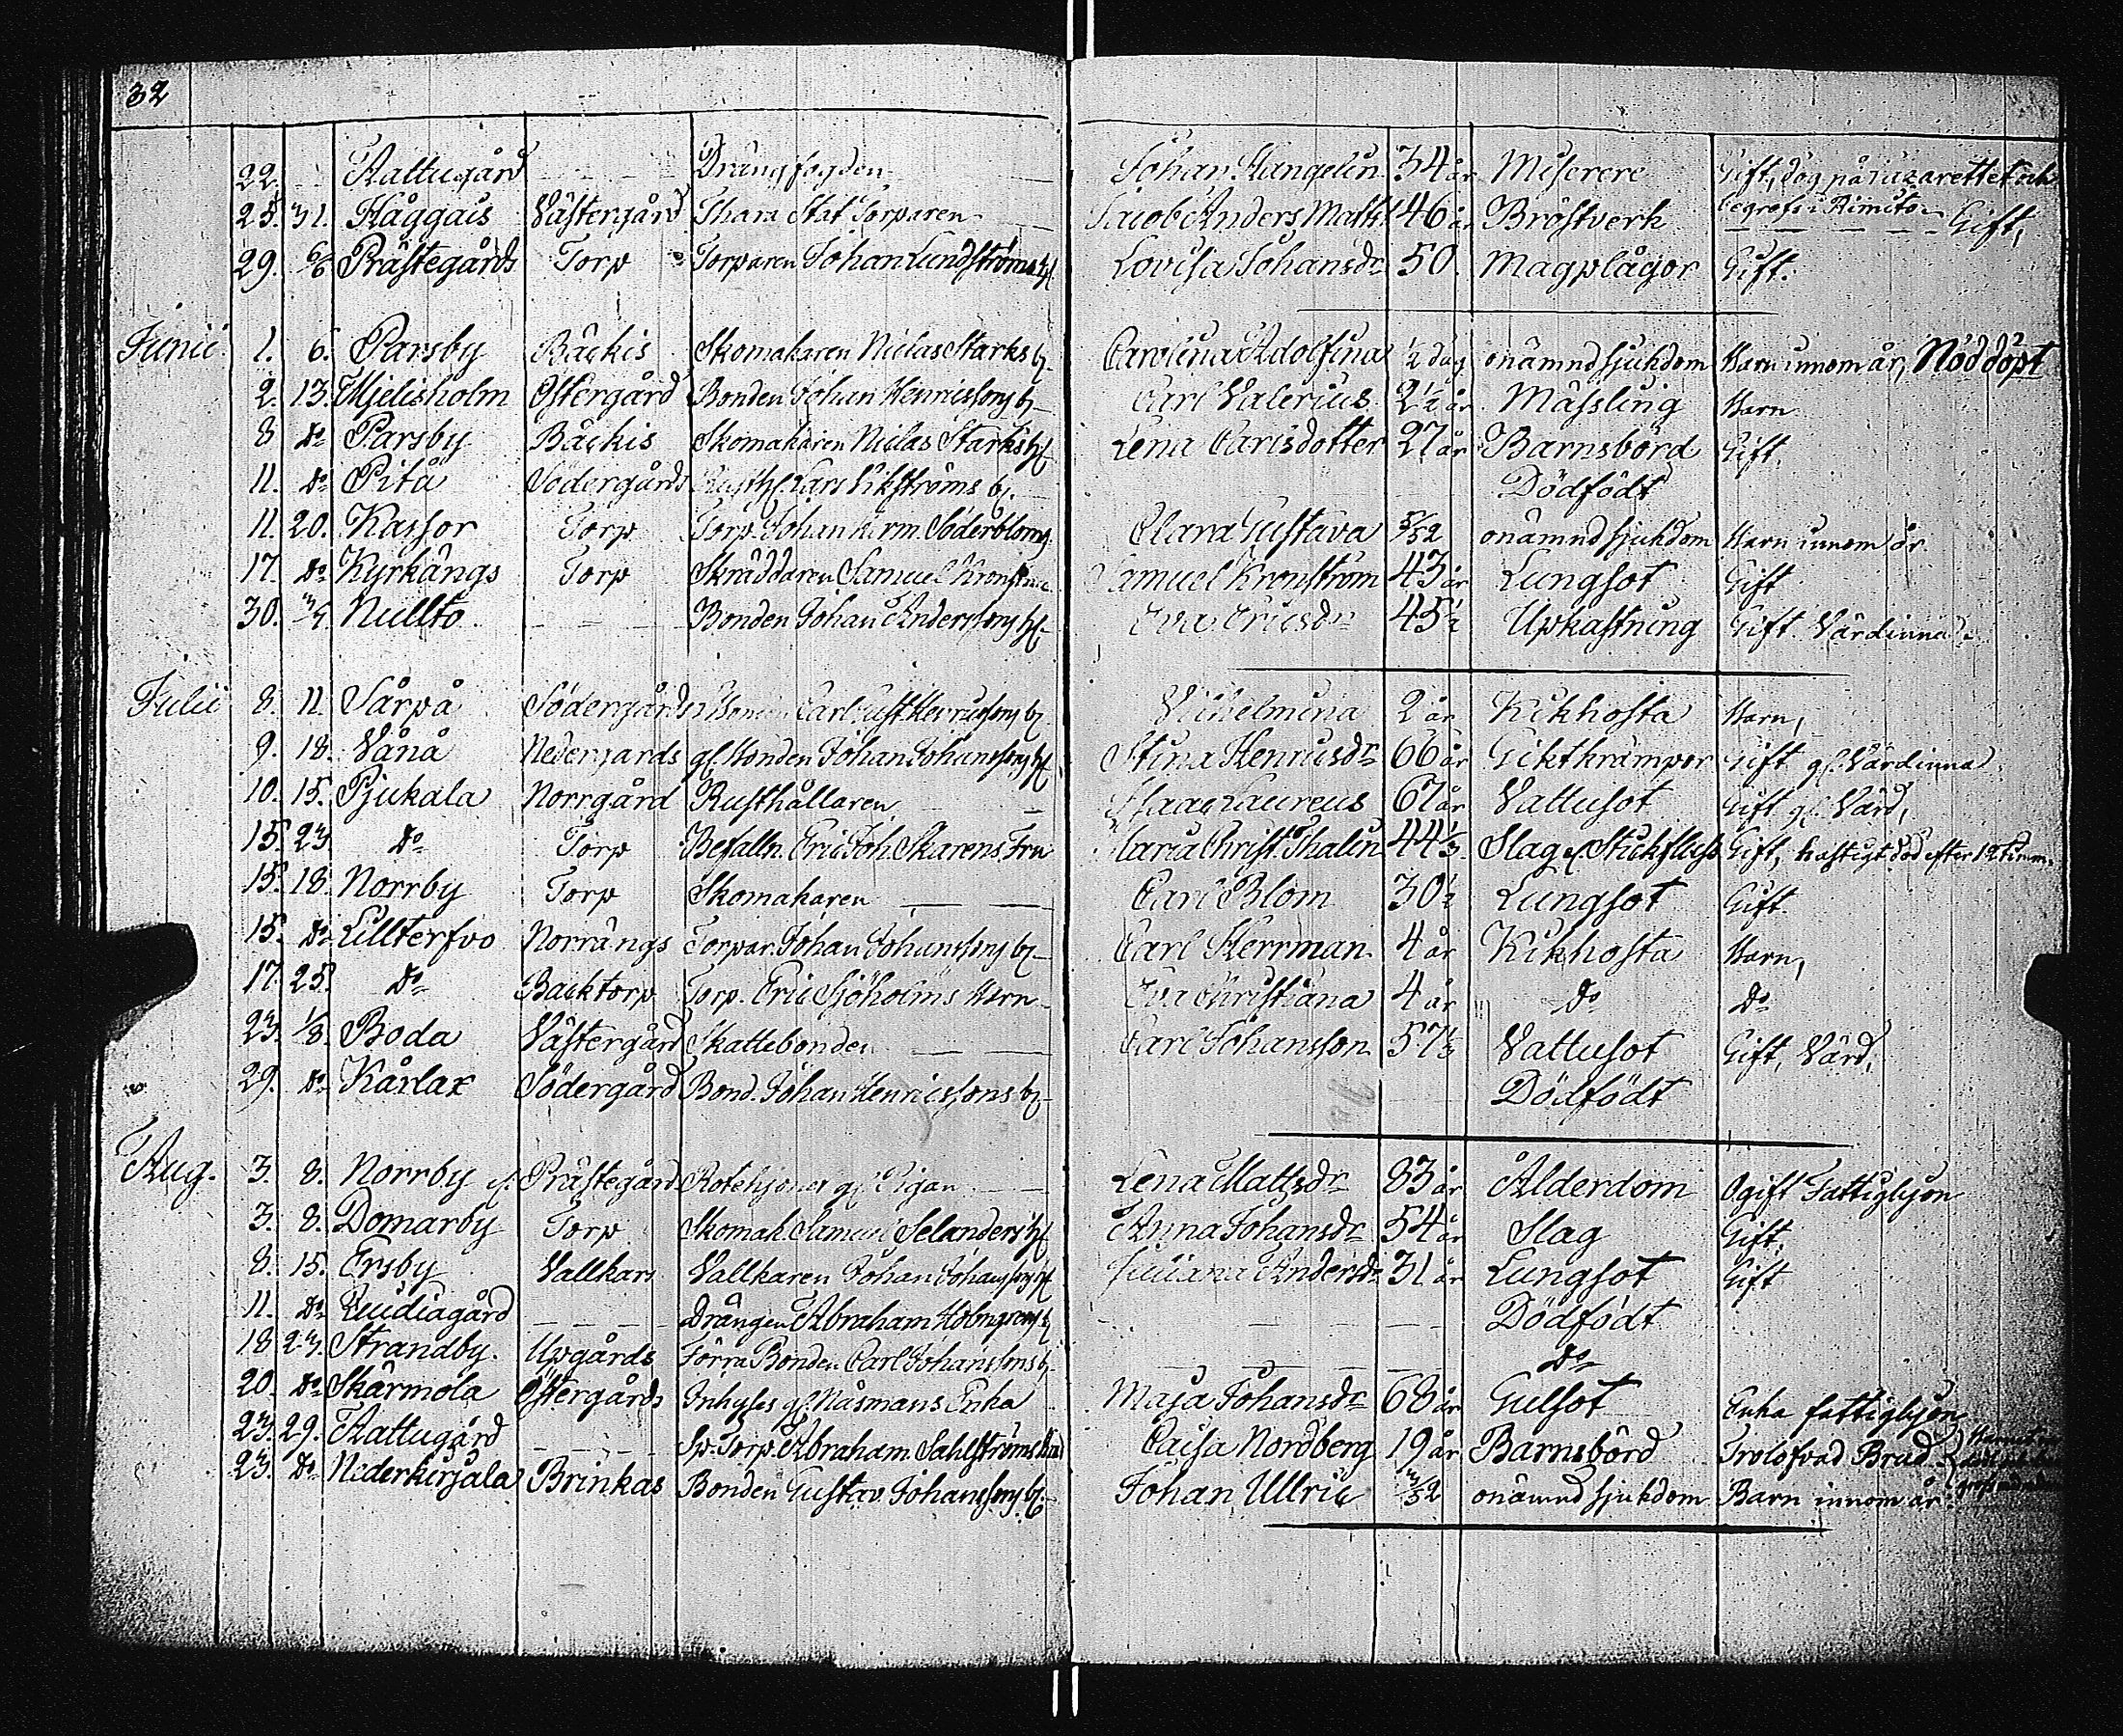 32
22. Attugård Drängfogden Johan Hangelin 34 år Miserere Gift, dog på Lazarettet och
begrofs i Rimito
25. 31. Häggais Västergård Torparen Jacob Anders Matts 46 år Bröstverk Gift,
29. 6/6 Prästegårds Torp Torparen Johan Lundströms h. Lovisa Johansdr 50. Magplågor Gift.
Junii 1. 6. Parsby Bäckis Skomakaren Niclas Starks b. Carolina Adolfina ½ dag onämnd sjukdom Barn innom år, Nöddöpt
2. 13. Mjelisholm Östergård Bonden Johan Henricssons b. Carl Valerius 2½ år Mässling Barn
8 Do Parsby Bäckis Skomakaren Niclas Starks h. Lena Carlsdotter 27 år Barnsbörd Gift.
11. Do Pitå Södergård Lars Vikströms b. Dödfödt
11. 20. Kassor Torp Torp. Johan Herm. Söderbloms Clara Gustava 5/52 onämnd sjukdom Barn innom år.
17. Do Kyrkängs Torp Skräddaren Samuel Kronström Samuel Kronström 43 år Lungsot Gift
30. Nullto Bonden Johan Anderssons h. Eva Ericsdr 45½ Upkastning Gift. Värdinna.
Julii 8. 11. Sårpå Södergårds Carl Gust Henricssons b. Vilhelmina 2 år Kikhosta Barn,
9. 18. Vånå Nedergårds gl. Bonden Johan Johanssons h. Stina Henricsdr 66 år Giktkrämpor Gift gl. Värdinna
10. 15. Pjukala Norrgård Rusthållaren Isaac Laureus 67 år Vattusot Gift gl. Värd,
15. 23. Do Torp Befalln. Eric Joh. Skarens Fru Maria Christ. Thalin 44⅓ Slag Stickfluss Gift, hastigt död efter 12 timm.
15. 18. Norrby Torp Skomakaren Carl Blom 30½ Lungsot Gift.
15. Do Lillterfvo Norrängs Torpar. Johan Johanssons b. Carl Herrman 4 år Kikhosta Barn,
17. 25. Do Backtorp Torp. Eric Sjöholms Barn Eva Christiana 4 år Do Do
23. 1/8. Boda Västergård Skattebonden Carl Johansson 57½ Vattusot Gift, Värd,
29. Do Kårlax Södergård Bond. Johan Henricssons b. Dödfödt
Aug. 3. 8. Norrby Prästegård Rotehjonet gl. Pigan Lena Mattsdr 83 år Ålderdom Ogift Fattighjon
3. 8. Domarby Torp Skomak. Samuel Selanders h. Anna Johansdr 54 år Slag Gift.
8. 15. Ersby Vallkars Vallkaren Johan Johanssons h. Juliana Andersdr 31 år Lungsot Gift
11. Do Drängen Abraham Dödfödt
18 23. Strandby. Upgårds Förra Bonden Carl Johanssons b. Do
20. Do Skärmola Östergårds Inhyses gl. Måsmans Enka Maja Johansdr 68 år Gulsot Enka fattighjon
23. 29. Attugård Sp. Torp. Abraham Sahlströms Caisa Nordberg 19 år Barnsbörd Trolofvad Brud
23. Do Nederkirjala Brinkas Bonden Gustav Johanssons b. Johan Ullric 3/52 onämnd sjukdom Barn innom år.